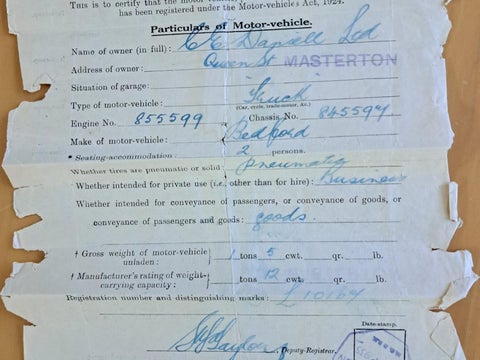 This is to certify that the motor vehicle,
has been registered under the Motor-vehicles Act, 1924.
Particulars of Motor-vehicle.
Name of owner (in full): C E Daniell Ltd
Address of owner: Queen St MASTERTON
Situation of garage:
Type of motor-vehicle: Truck
(Car, cycle, trade-motor, &c.)
Engine No. 855599 Chassis No. 845597
Make of motor-vehicle: Bedford
* Seating-accommodation: 2 persons.
Whether tires are pneumatic or solid: pneumatic
Whether intended for private use (i.e., other than for hire): Business
Whether intended for conveyance of passengers, or conveyance of goods, or
conveyance of passengers and goods: goods.
† Gross weight of motor-vehicle
unladen: 1 tons 5 cwt. qr. lb.
† Manufacturer's rating of weight-
carrying capacity: tons 12 cwt. qr. lb.
Registration number and distinguishing marks:
Date-stamp.
, Deputy-Registrar.